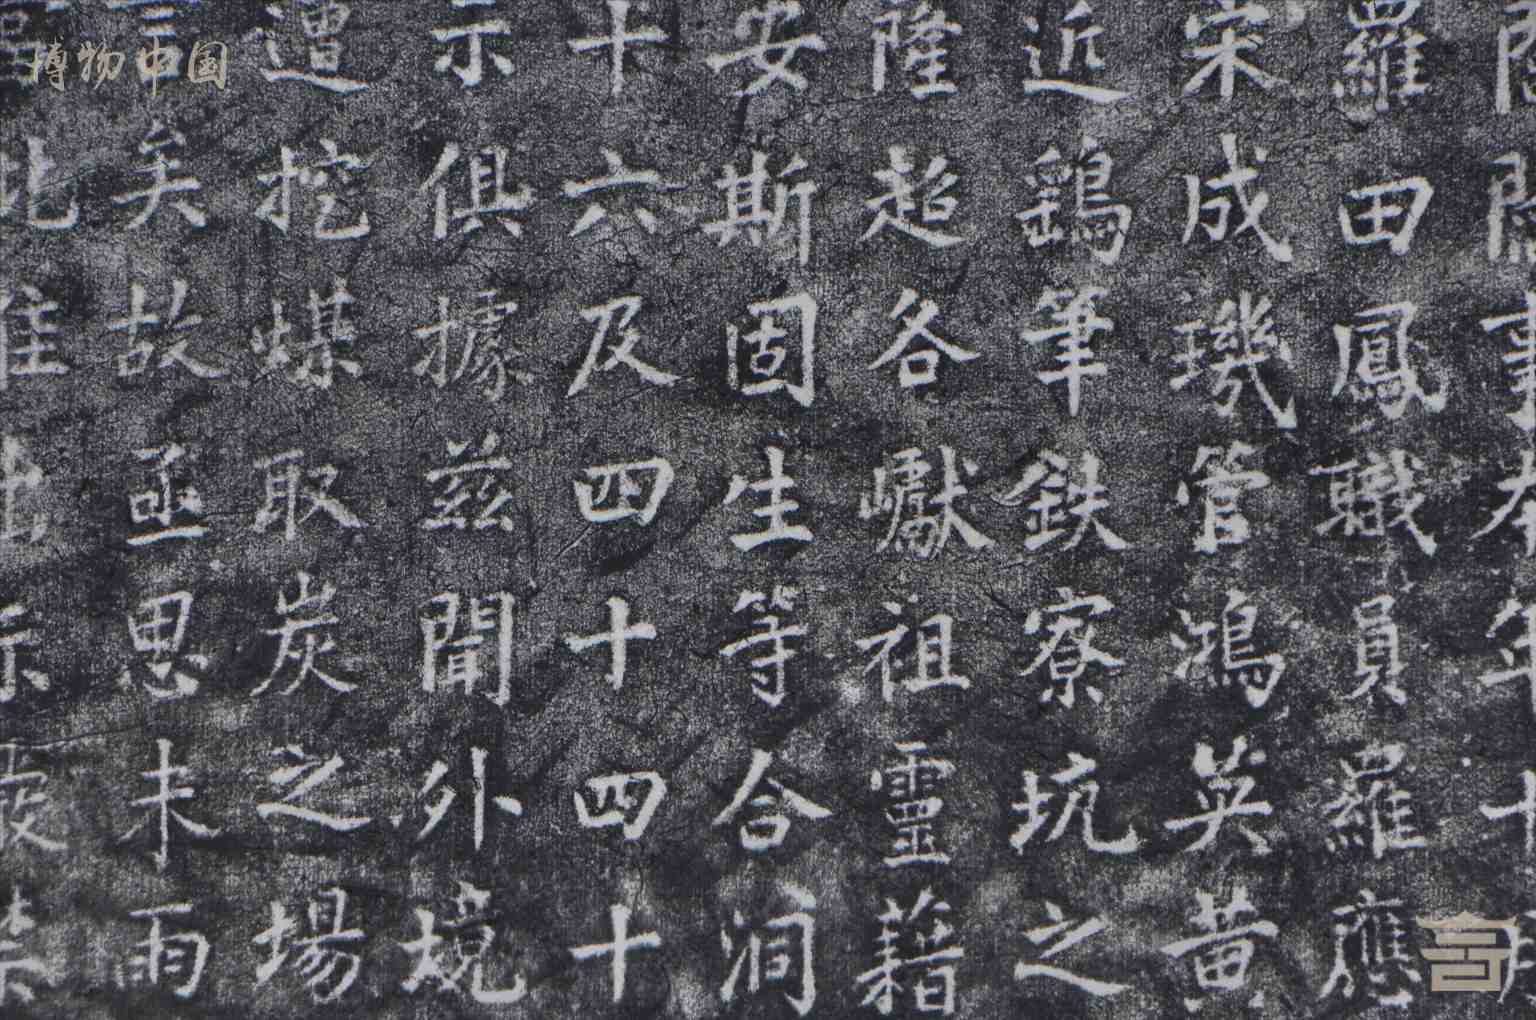 博物中国
羅田鳳職員羅應
宋成璣管鴻英黃
近鷄筆鉄寮坑之
隆超各巘祖靈藉
安斯固生等合澗
十六及四十四十
示俱據茲聞外境
遭挖煤取炭之場
矣故亟思未雨